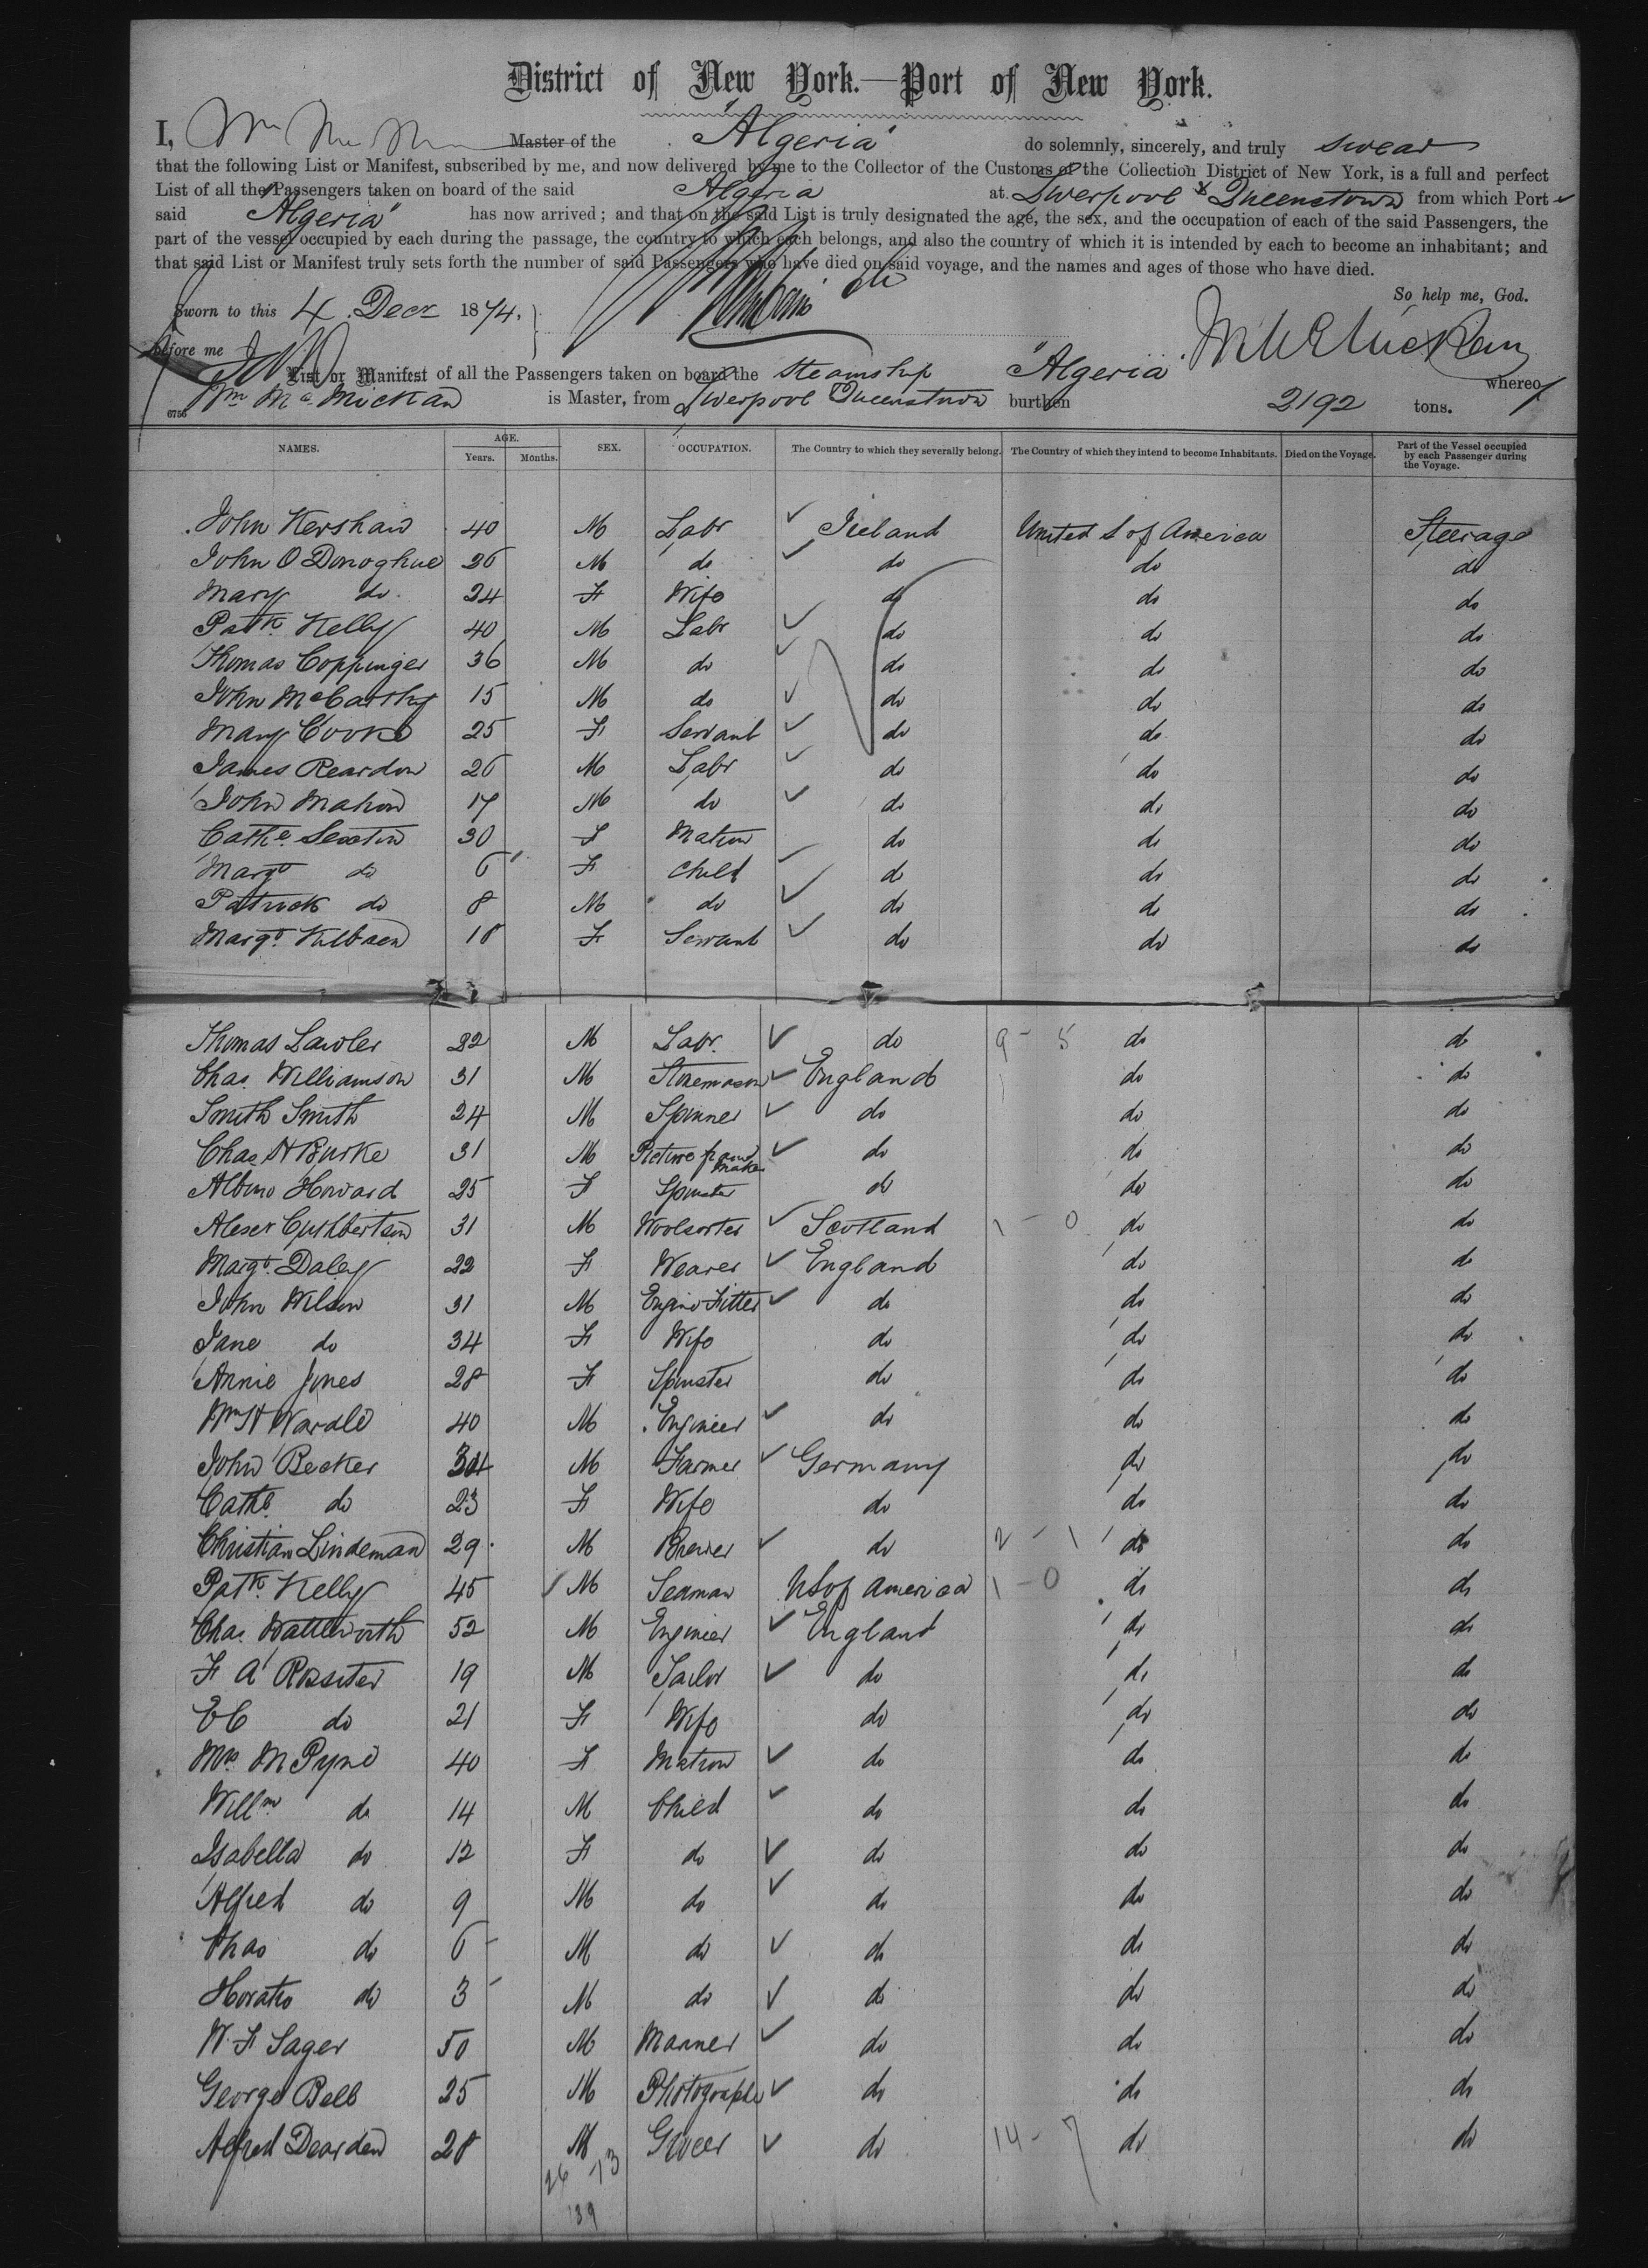 District of New York.—Port of New York.
I, Wm Mc M Master of the "Algeria" do solemnly, sincerely, and truly swear
that the following List or Manifest, subscribed by me, and now delivered by me to the Collector of the Customs of the Collection District of New York, is a full and perfect
List of all the Passengers taken on board of the said Algeria at Liverpool & Queenstown from which Port
said "Algeria" has now arrived; and that on the said List is truly designated the age, the sex, and the occupation of each of the said Passengers, the
part of the vessel occupied by each during the passage, the country to which each belongs, and also the country of which it is intended by each to become an inhabitant; and
that said List or Manifest truly sets forth the number of said Passengers who have died on said voyage, and the names and ages of those who have died.
So help me, God.
Sworn to this 4 Decr 1874,
before me
List or Manifest of all the Passengers taken on board the Steamship "Algeria" whereof
Wm McMickan is Master, from Liverpool Queenstown burthen 2192 tons.
6755
NAMES. AGE. Years. Months. SEX. OCCUPATION. The Country to which they severally belong. The Country of which they intend to become Inhabitants. Died on the Voyage. Part of the Vessel occupied by each Passenger during the Voyage.
John Kershaw 40 M Labr Ireland United S of America Steerage
John O Donoghue 26 M do do do do
Mary do 24 F Wife do do do
Patk Kelly 40 M Labr do do do
Thomas Coppinger 36 M do do do do
John McCarthy 15 M do do do do
Mary Cooke 25 F Servant do do do
James Reardon 26 M Labr do do do
John Mahon 17 M do do do do
Cathe Sexton 30 F Matron do do do
Margt do 6 F Child do do do
Patrick do 8 M do do do do
Margt 18 F Servant do do do
Thomas Lawler 22 M Labr. do 9 - 5 do do
Chas. Williamson 31 M Stonemason England do do
Smith Smith 24 M Spinner do do do
Chas H Burke 31 M Picture frame maker do do do
Howard 25 F Spinster do do do
Alexr Cuthbertson 31 M Woolsorter Scotland 1 - 0 do do
Margt. Daley 22 F Weaver England do do
John Wilson 31 M Engine Fitter do do do
Jane do 34 F Wife do do do
Annie Jones 28 F Spinster do do do
Wm H Wardle 40 M Engineer do do do
John Becker 34 M Farmer Germany do do
Cathe do 23 F Wife do do do
Christian Lindeman 29 M Brewer do 2 - 1 do do
Patk. Kelly 45 M Seaman US of America 1 - 0 do do
Chas. Wattleworth 52 M Engineer England do do
F A Rossiter 19 M Tailor do do do
E C do 21 F Wife do do do
Mrs M Pyne 40 F Matron do do do
Willm do 14 M Child do do do
Isabella do 12 F do do do do
Alfred do 9 M do do do do
Chas do 6 M do do do do
Horatio do 3 M do do do do
W. F Sager 50 M Mariner do do do
George Bell 25 M Photographer do do do
Alfred Dearden 28 M Grocer do 14 - 7 do do
26 13
39